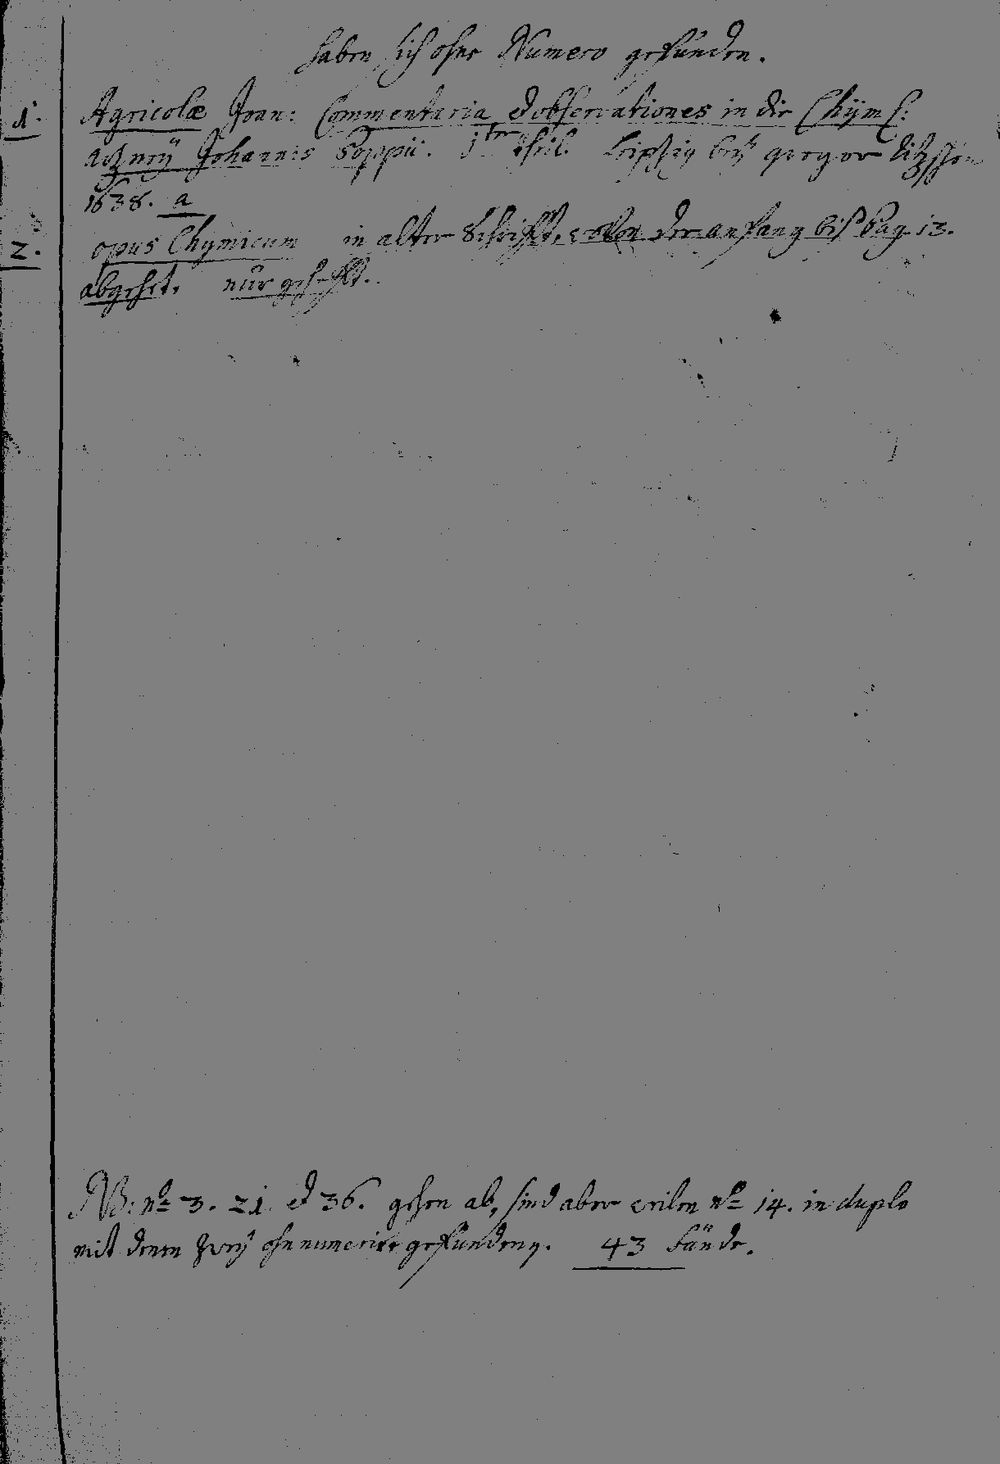 haben sich ohne Numero gefunden.
1. Agricolæ Joan: Commentaria et observationes in die Chÿm:
Artzneÿ Johannis Poppii. 1ter theil. Leipzig beÿ gregor Ritzschen
1638. a
2. opus Chymicum in alter Schrifft, von der anfang biß Pag. 13.
abgehet. nur gehefft.
NB: No 3. 21. et 36. gehen ab, sind aber weilen No 14. in duplo
mit denen zweÿ ohnnumerirt gefundenen. 43 Bände.